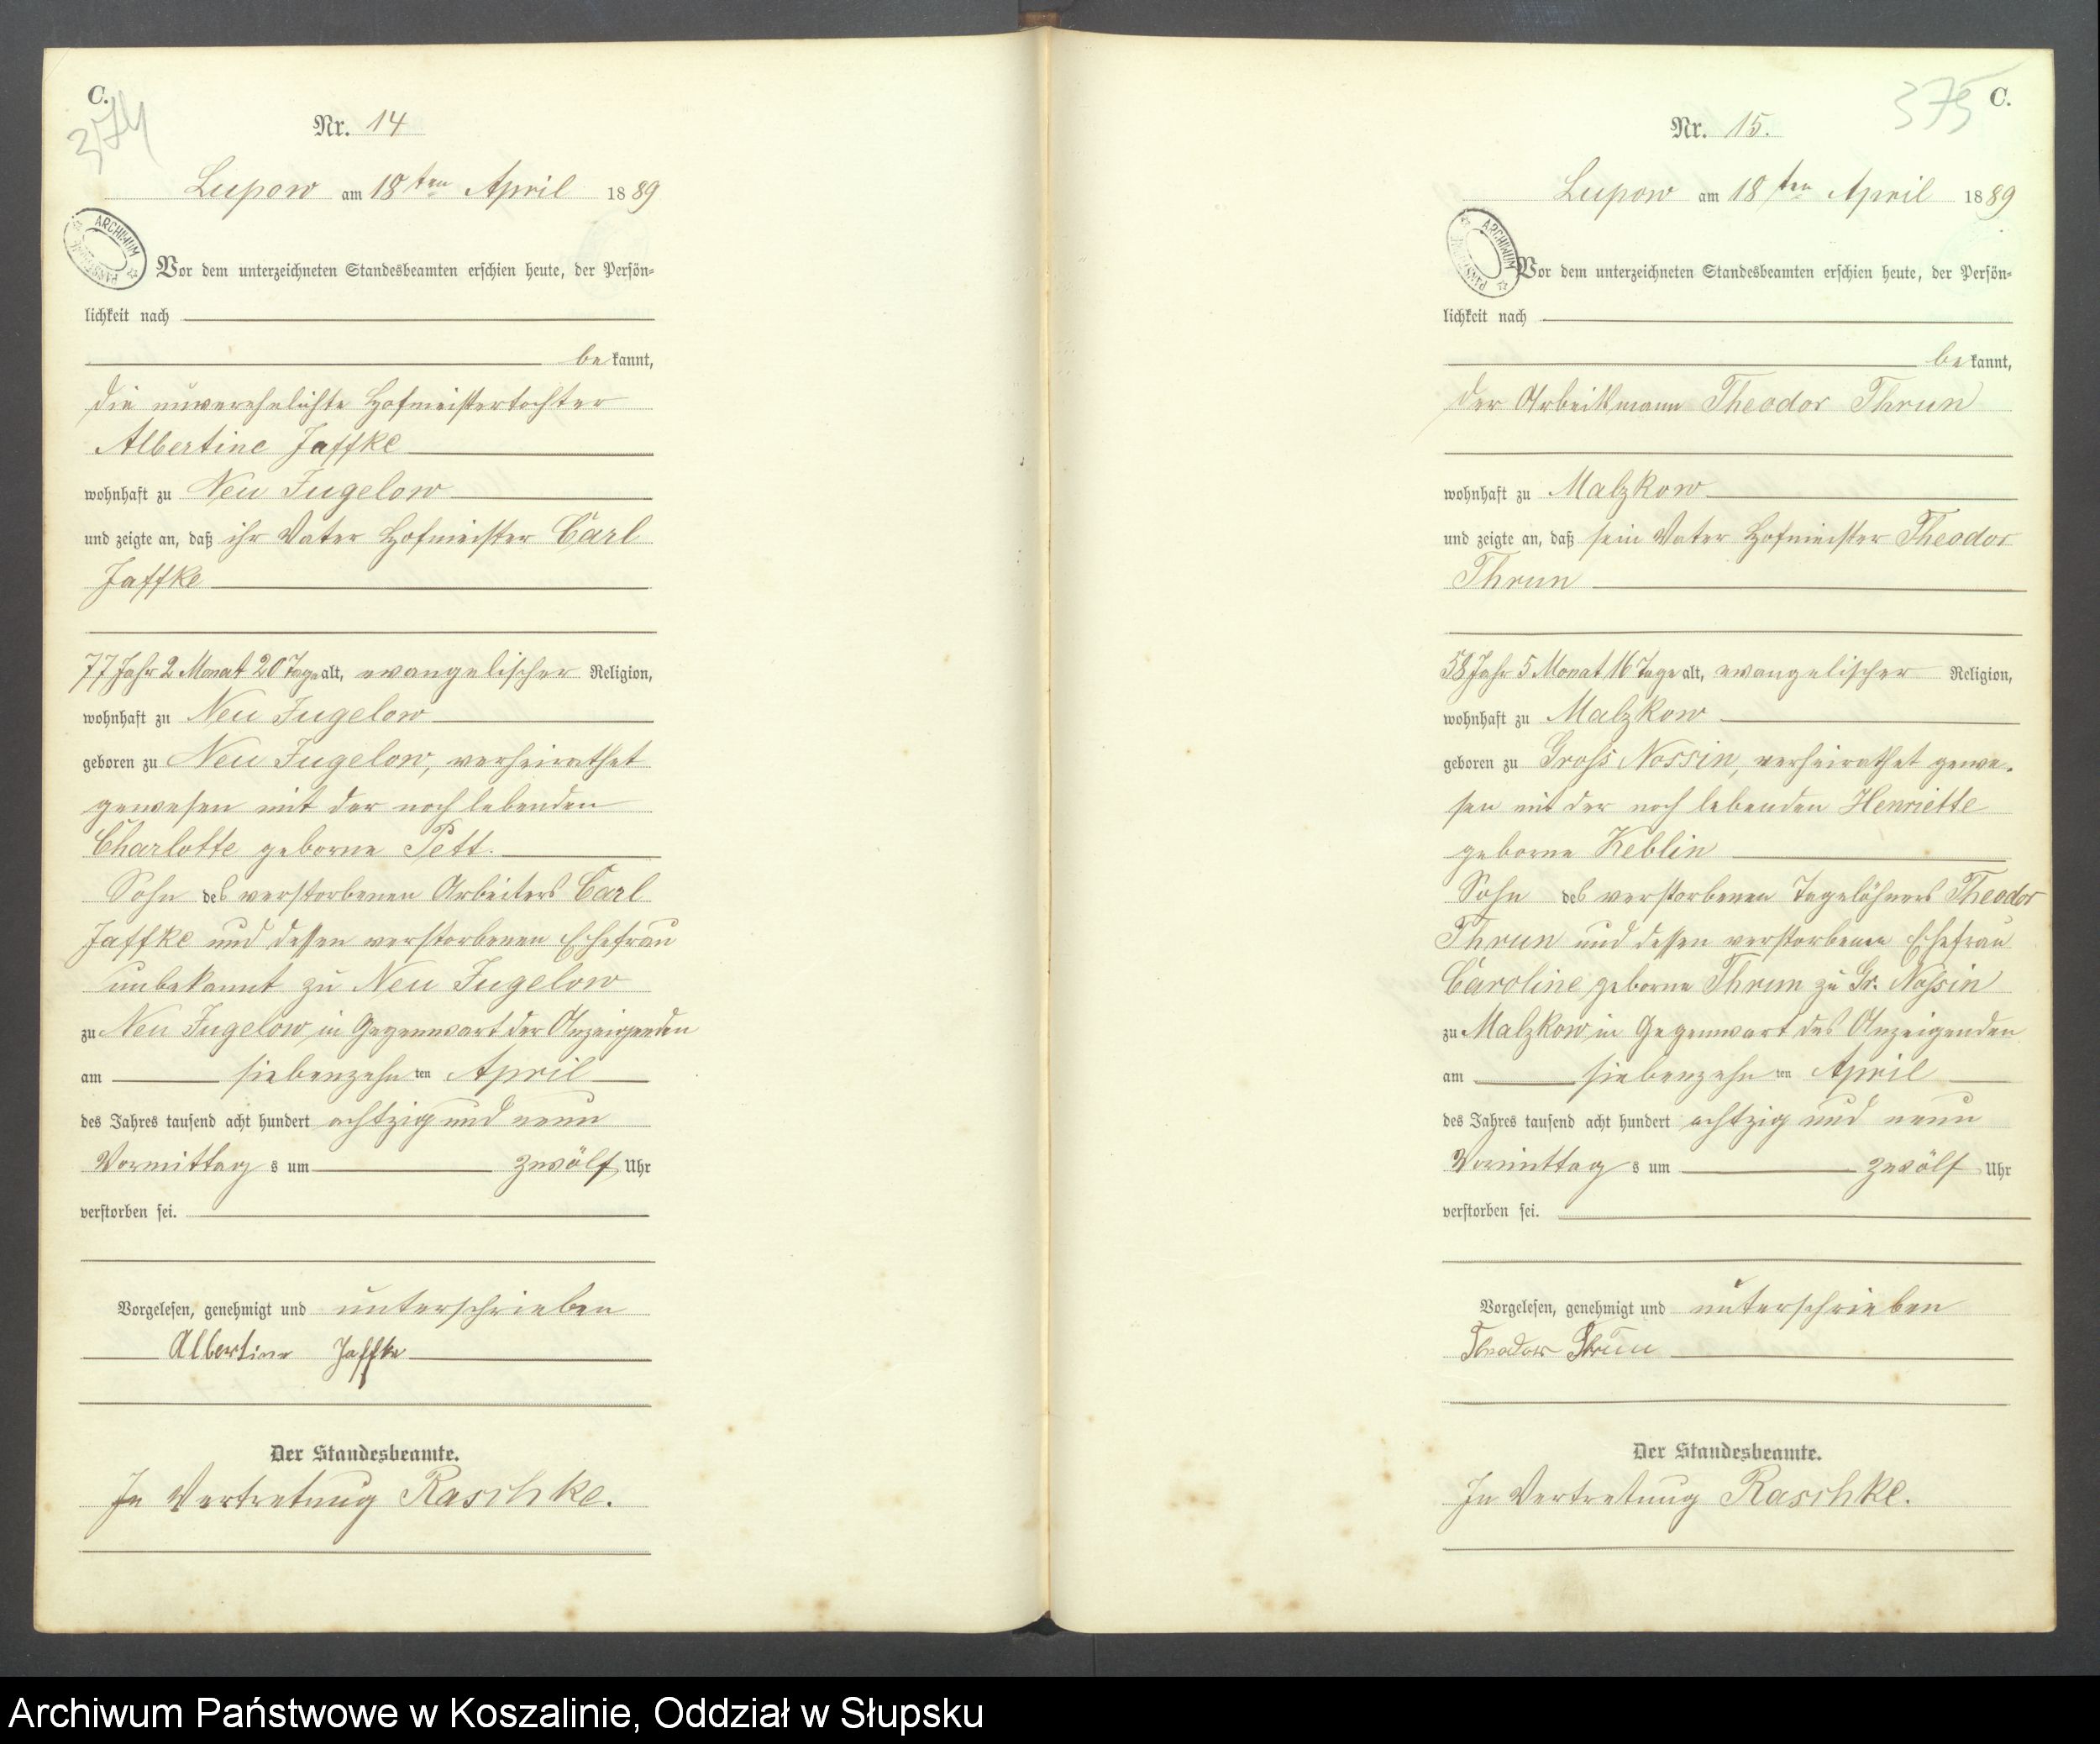 C.
374
Nr. 14
Lupow am 18ten April 1889
ARCHIWUM
Vor dem unterzeichneten Standesbeamten erschien heute, der Persön=
lichkeit nach
bekannt,
die unverehelichte Hofmeistertochter
Albertine Jaffke
wohnhaft zu Neu Jugelow
und zeigte an, daß ihr Vater Hofmeister Carl
Jaffke
77 Jahr 2 Monat 20 Tage alt, evangelischer Religion,
wohnhaft zu Neu Jugelow
geboren zu Neu Jugelow, verheirathet
gewesen mit der noch lebenden
Charlotte geborne Pett.
Sohn des verstorbenen Arbeiters Carl
Jaffke und dessen verstorbenen Ehefrau
unbekannt zu Neu Jugelow
zu Neu Jugelow in Gegenwart der Anzeigenden
am siebenzehnten April
des Jahres tausend acht hundert achtzig und neun
Vormittags um zwölf Uhr
verstorben sei.
Vorgelesen, genehmigt und unterschrieben
Albertine Jaffke
Der Standesbeamte.
In Vertretung Raschke.
375 C.
Nr. 15.
Lupow am 18ten April 1889
ARCHIWUM
Vor dem unterzeichneten Standesbeamten erschien heute, der Persön=
lichkeit nach
bekannt,
der Arbeitsmann Theodor Thrun
wohnhaft zu Malzkow
und zeigte an, daß sein Vater Hofmeister Theodor
Thrun
58 Jahr 5 Monat 16 Tage alt, evangelischer Religion,
wohnhaft zu Malzkow
geboren zu Groß Nossin, verheirathet gewe-
sen mit der noch lebenden Henriette
geborne Keblin
Sohn des verstorbenen Tagelöhners Theodor
Thrun und dessen verstorbenen Ehefrau
Caroline geborne Thrun zu Gr. Nossin
zu Malzkow in Gegenwart des Anzeigenden
am siebenzehnten April
des Jahres tausend acht hundert achtzig und neun
Vormittags um zwölf Uhr
verstorben sei.
Vorgelesen, genehmigt und unterschrieben
Theodor Thrun
Der Standesbeamte.
In Vertretung Raschke.
Archiwum Państwowe w Koszalinie, Oddział w Słupsku